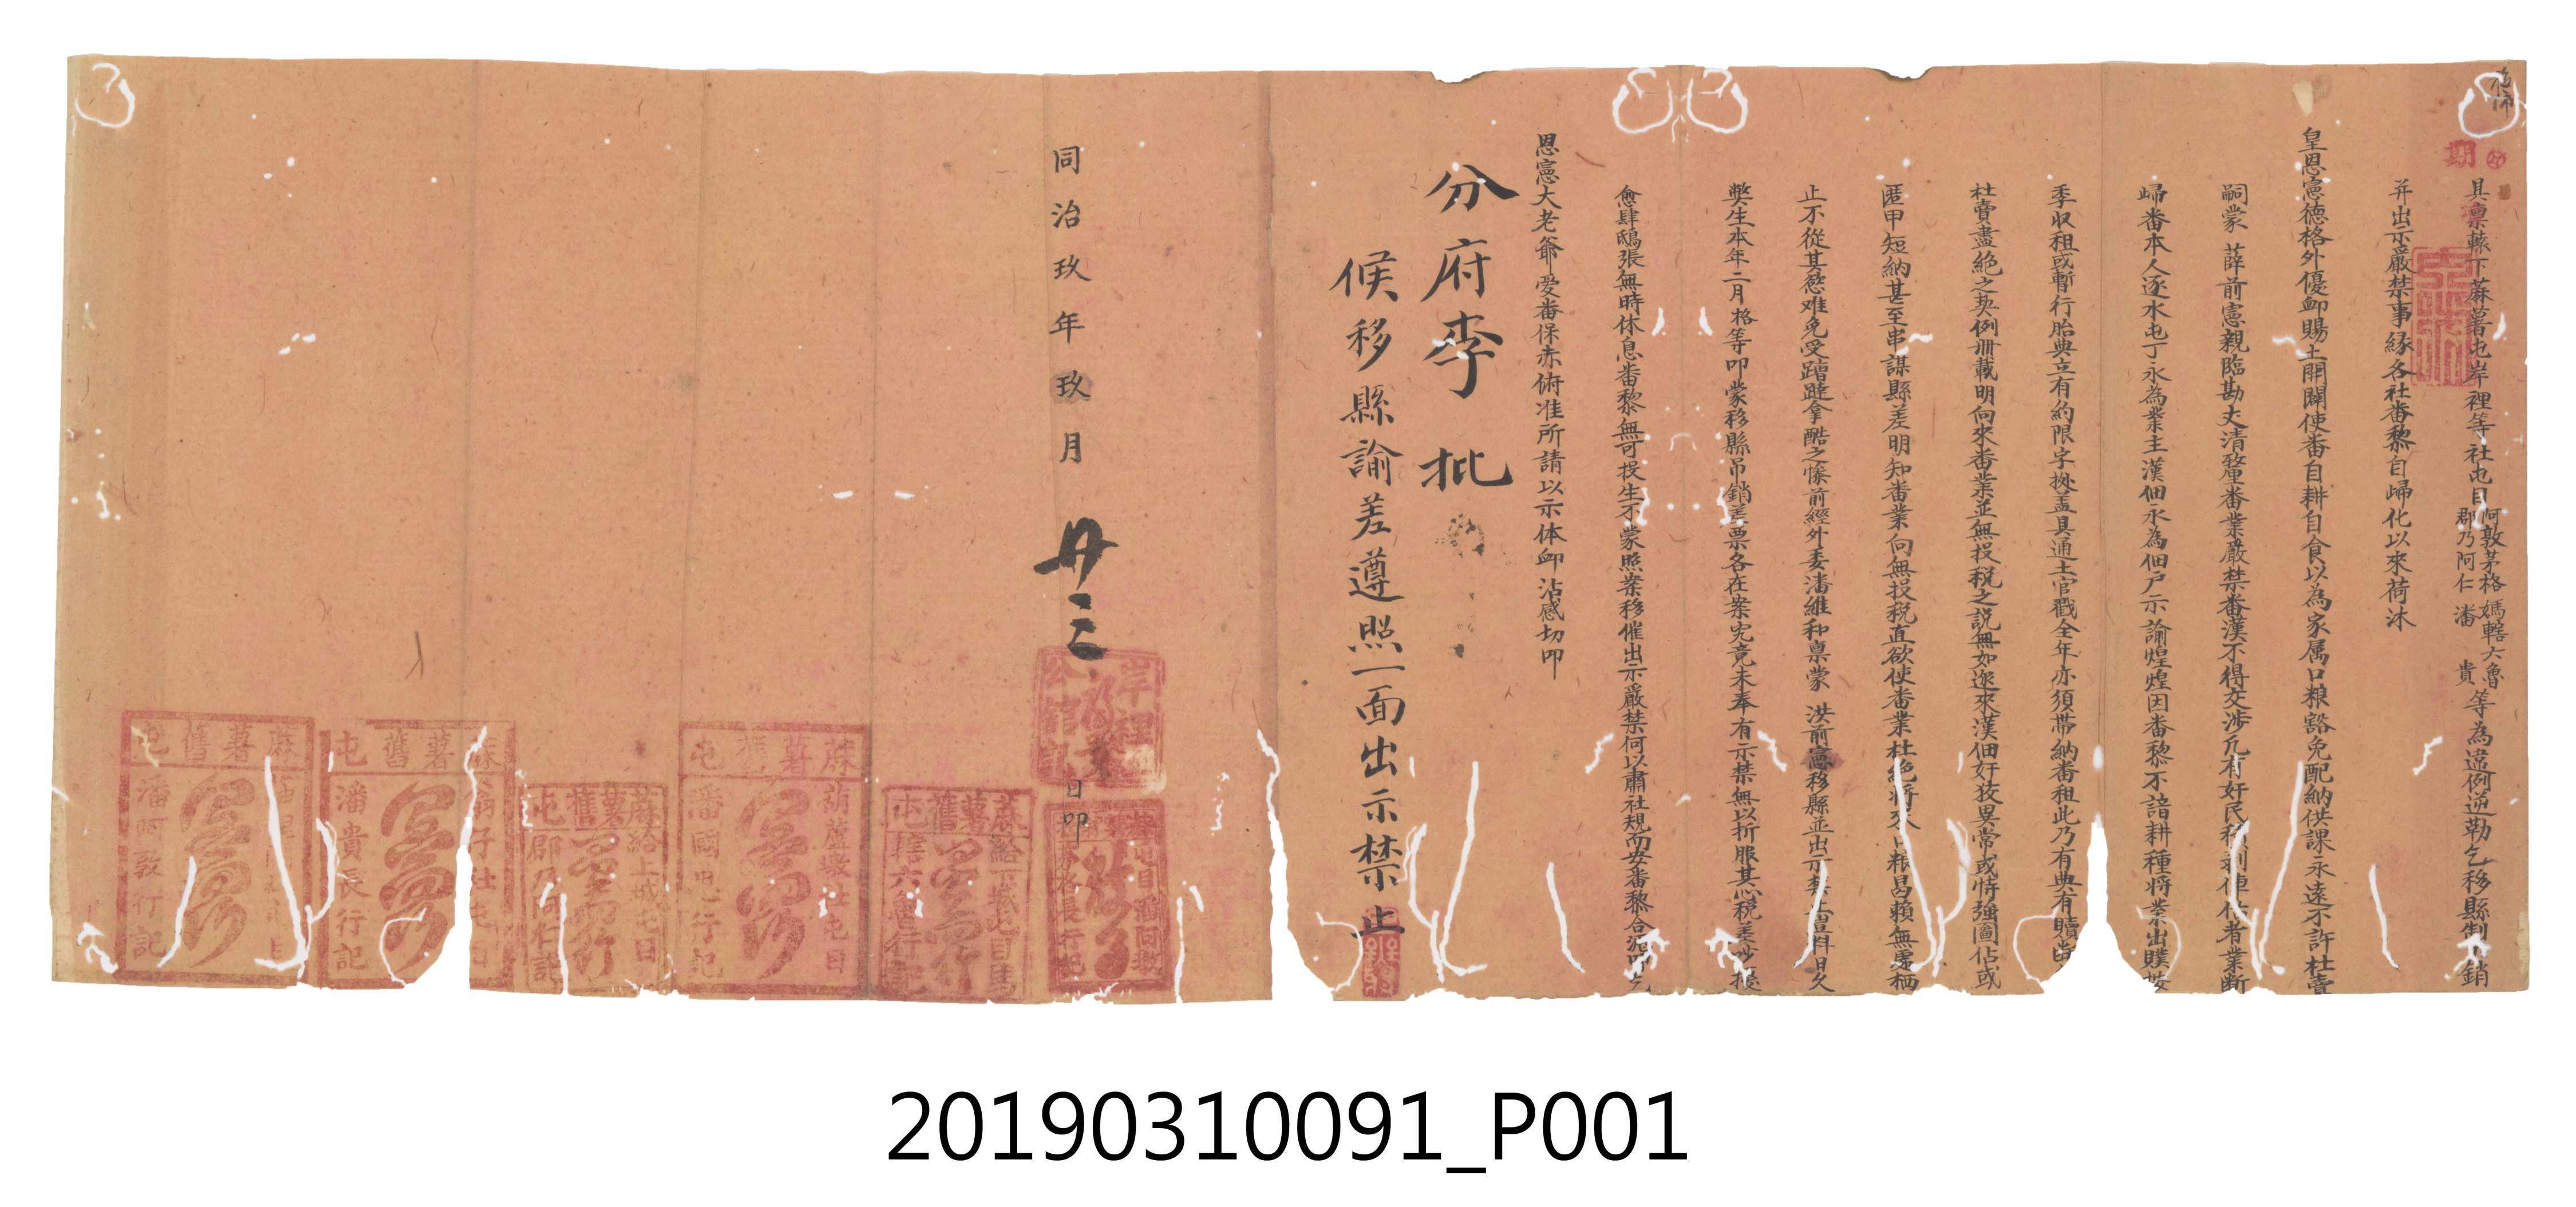 具稟轅下蔴薯屯岸裡等社屯目阿敦茅格 媽轄六魯 郡乃阿仁 潘貴等為違例逆勒乞移縣制銷
并出示嚴禁事緣各社番黎自歸化以來荷沐
皇恩憲德格外優卹賜土開闢使番自耕自食以為家属口粮豁免配納供課永遠不許杜賣
嗣蒙薛前憲親臨勘丈清釐番業嚴禁番漢不得交涉凢有奸民者業斷
歸番本人逐水屯丁永為業主漢佃永為佃户示諭煌煌因番黎不諳耕種將業出贌
季収租或暫行胎典立有約限字揆盖具通土官戳全年亦須帯納番租此乃有典有贖
杜賣盡絶之契例冊載明向來番業並無投税之説無如邇來漢佃奸狡異常或恃強圖佔或
匿甲短納甚至串謀縣差明知番業向無投税直欲使番業杜絶粮曷賴無處栖
止不從其慾难免受蹧蹋拿酷之慘前經外委潘維和稟蒙洪前憲移縣並出示日久
弊生本年二月格等叩蒙移縣吊銷差票各在案究竟未奉有示禁無以折服其心税差
愈肆鴟張無時休息番黎無可投生不蒙照案移催出示嚴禁何以肅社規而安番黎合
恩憲大老爺愛番保赤俯准所請以示体卹沾感切叩
分府李批
候移縣諭差遵照一面出示禁止
同治玖年玖月廿三日叩
岸裡公館記
蔴薯舊屯
轄六魯行記
蔴薯舊屯
葫蘆墩社屯目
潘國屯行記
蔴薯舊屯
給上城屯目
郡乃阿仁記
蔴薯舊屯
潘貴長行記
蔴薯舊屯
潘阿敦行記
20190310091_P001